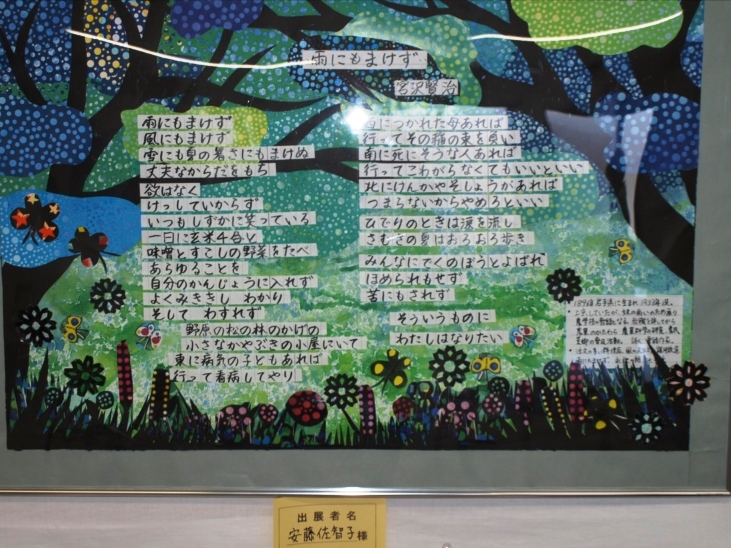 雨にもまけず
宮沢賢治
雨にもまけず
風にもまけず
雪にも夏の暑さにもまけぬ
丈夫なからだをもち
欲はなく
けっしていからず
いつもしずかに笑っている
一日に玄米4合と
味噌とすこしの野菜をたべ
あらゆることを
自分のかんじょうに入れず
よくみききし わかり
そして わすれず
野原の松の林のかげの
小さなかやぶきの小屋にいて
東に病気の子どもあれば
行って看病してやり
西につかれた母あれば
行ってその稲の束を負い
南に死にそうな人あれば
行ってこわがらなくてもいいといい
北にけんかやそしょうがあれば
つまらないからやめろといい
ひでりのときは涙を流し
さむさの夏はおろおろ歩き
みんなにでくのぼうとよばれ
ほめられもせず
苦にもされず
そういうものに
わたしはなりたい
出展者名
安藤佐智子様